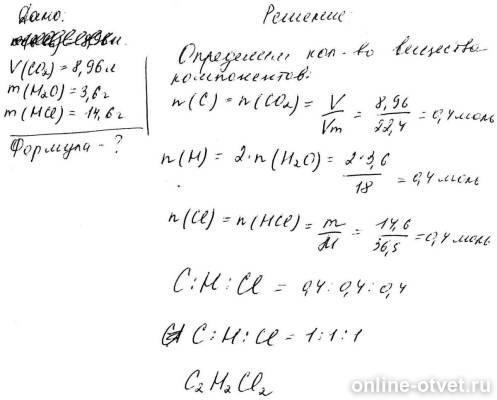 Дано:
V(CO₂) = 8,96 л
m(H₂O) = 3,6 г
m(HCl) = 14,6 г
Формула - ?
Решение
Определим кол-во вещества
компонентов:
n(C) = n(CO₂) = V/Vm = 8,96/22,4 = 0,4 моль
n(H) = 2·n(H₂O) = 2·3,6/18 = 0,4 моль
n(Cl) = n(HCl) = m/M = 14,6/36,5 = 0,4 моль
C:H:Cl = 0,4:0,4:0,4
C:H:Cl = 1:1:1
C₂H₂Cl₂
online-otvet.ru